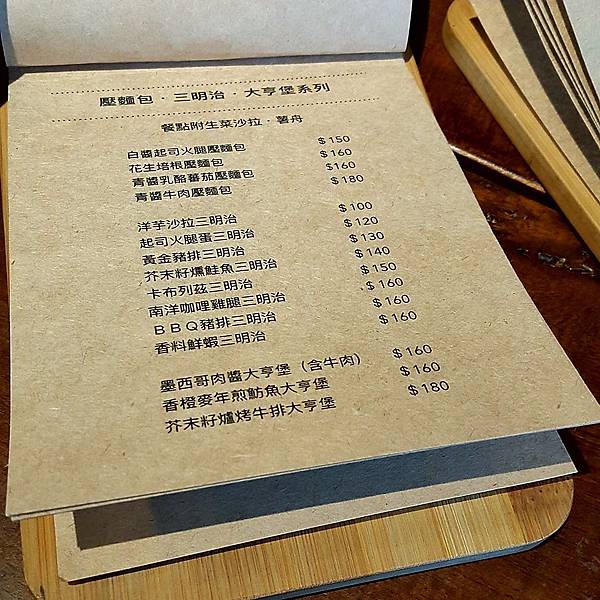 壓麵包．三明治．大亨堡系列
餐點附生菜沙拉．薯舟
白醬起司火腿壓麵包 $150
花生培根壓麵包 $160
青醬乳酪蕃茄壓麵包 $160
青醬牛肉壓麵包 $180
洋芋沙拉三明治 $100
起司火腿蛋三明治 $120
黃金豬排三明治 $130
芥末籽燻鮭魚三明治 $140
卡布列茲三明治 $150
南洋咖哩雞腿三明治 $160
ＢＢＱ豬排三明治 $160
香料鮮蝦三明治 $160
墨西哥肉醬大亨堡（含牛肉） $160
香橙麥年煎魴魚大亨堡 $160
芥末籽爐烤牛排大亨堡 $180